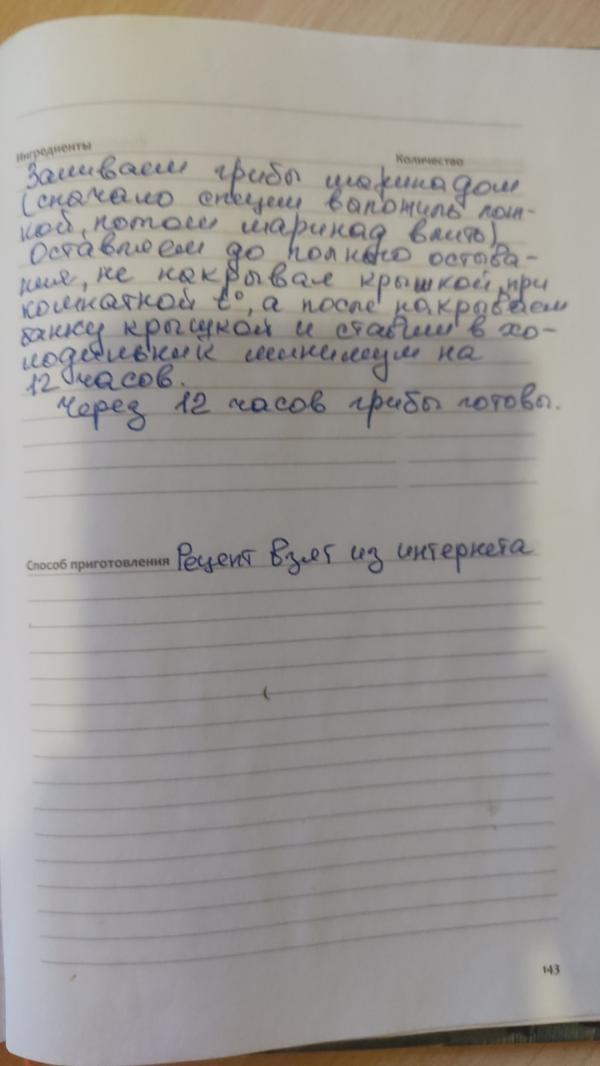 Ингредиенты Количество
Заливаем грибы маринадом
(сначало специи валожить лож-
кой, потом маринад влить)
Оставляем до полного остыва-
ния, не накрывая крышкой, при
комнатной t°, а после накрываем
банку крышкой и ставим в хо-
лодильник минимум на
12 часов.
Через 12 часов грибы готовы.
Способ приготовления Рецепт взят из интернета
143